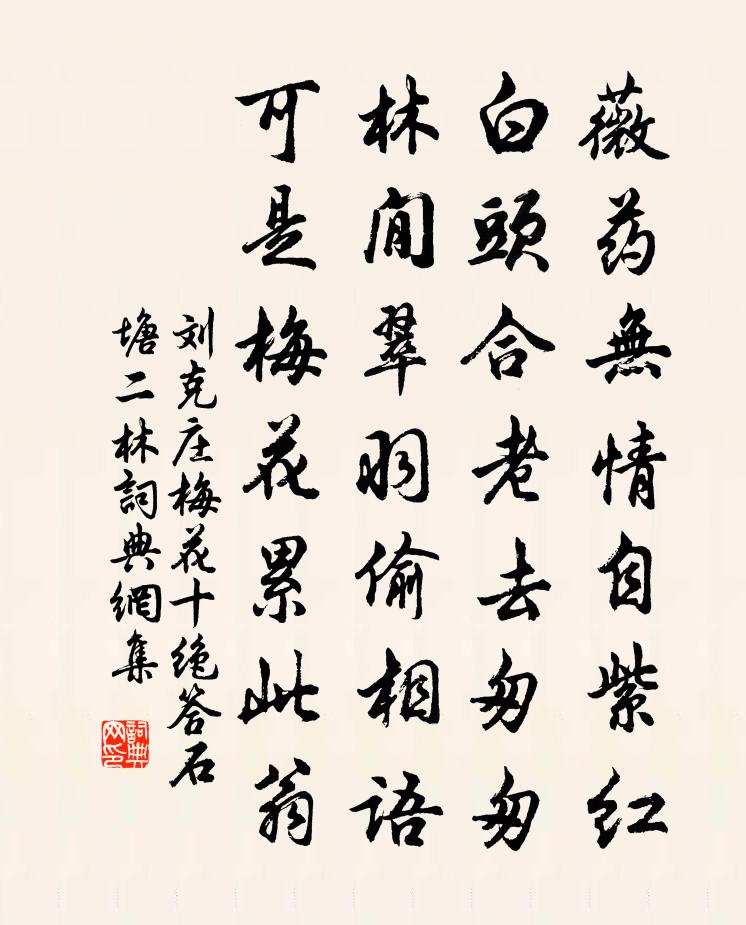 薇药無情自紫红
白頭合老去匆匆
林间翠羽偷相語
可是梅花累此翁
刘克庄梅花十绝答石
塘二林詞典網集
詞典网印